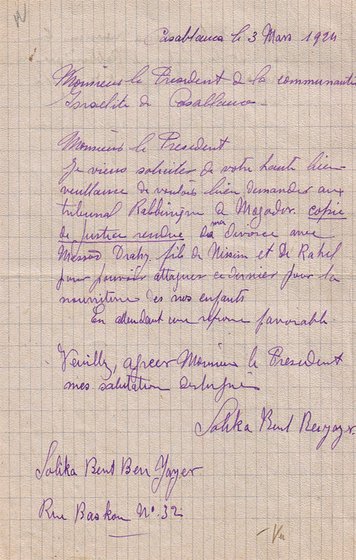 Casablanca le 3 Mars 1924
Monsieur le President de la communauté
Israelite de Casablanca
Monsieur le President
Je viens soliciter de votre haute bien
veuillance de vouloir bien demander aux
tribunal Rabbinique a Mogador copie
de justice rendue ma divorce avec
Messod Drahy fils de Nissim et de Rahel
pour pouvoir attaquer ce dernier pour la
nourriture des nos enfants
En attendant une reponse favorable
Veuillez, agreer Monsieur le President
mes salutation
Solika Bent Benyayer
Solika Bent Ben Yayer
Rue Baskou No. 32
Vu